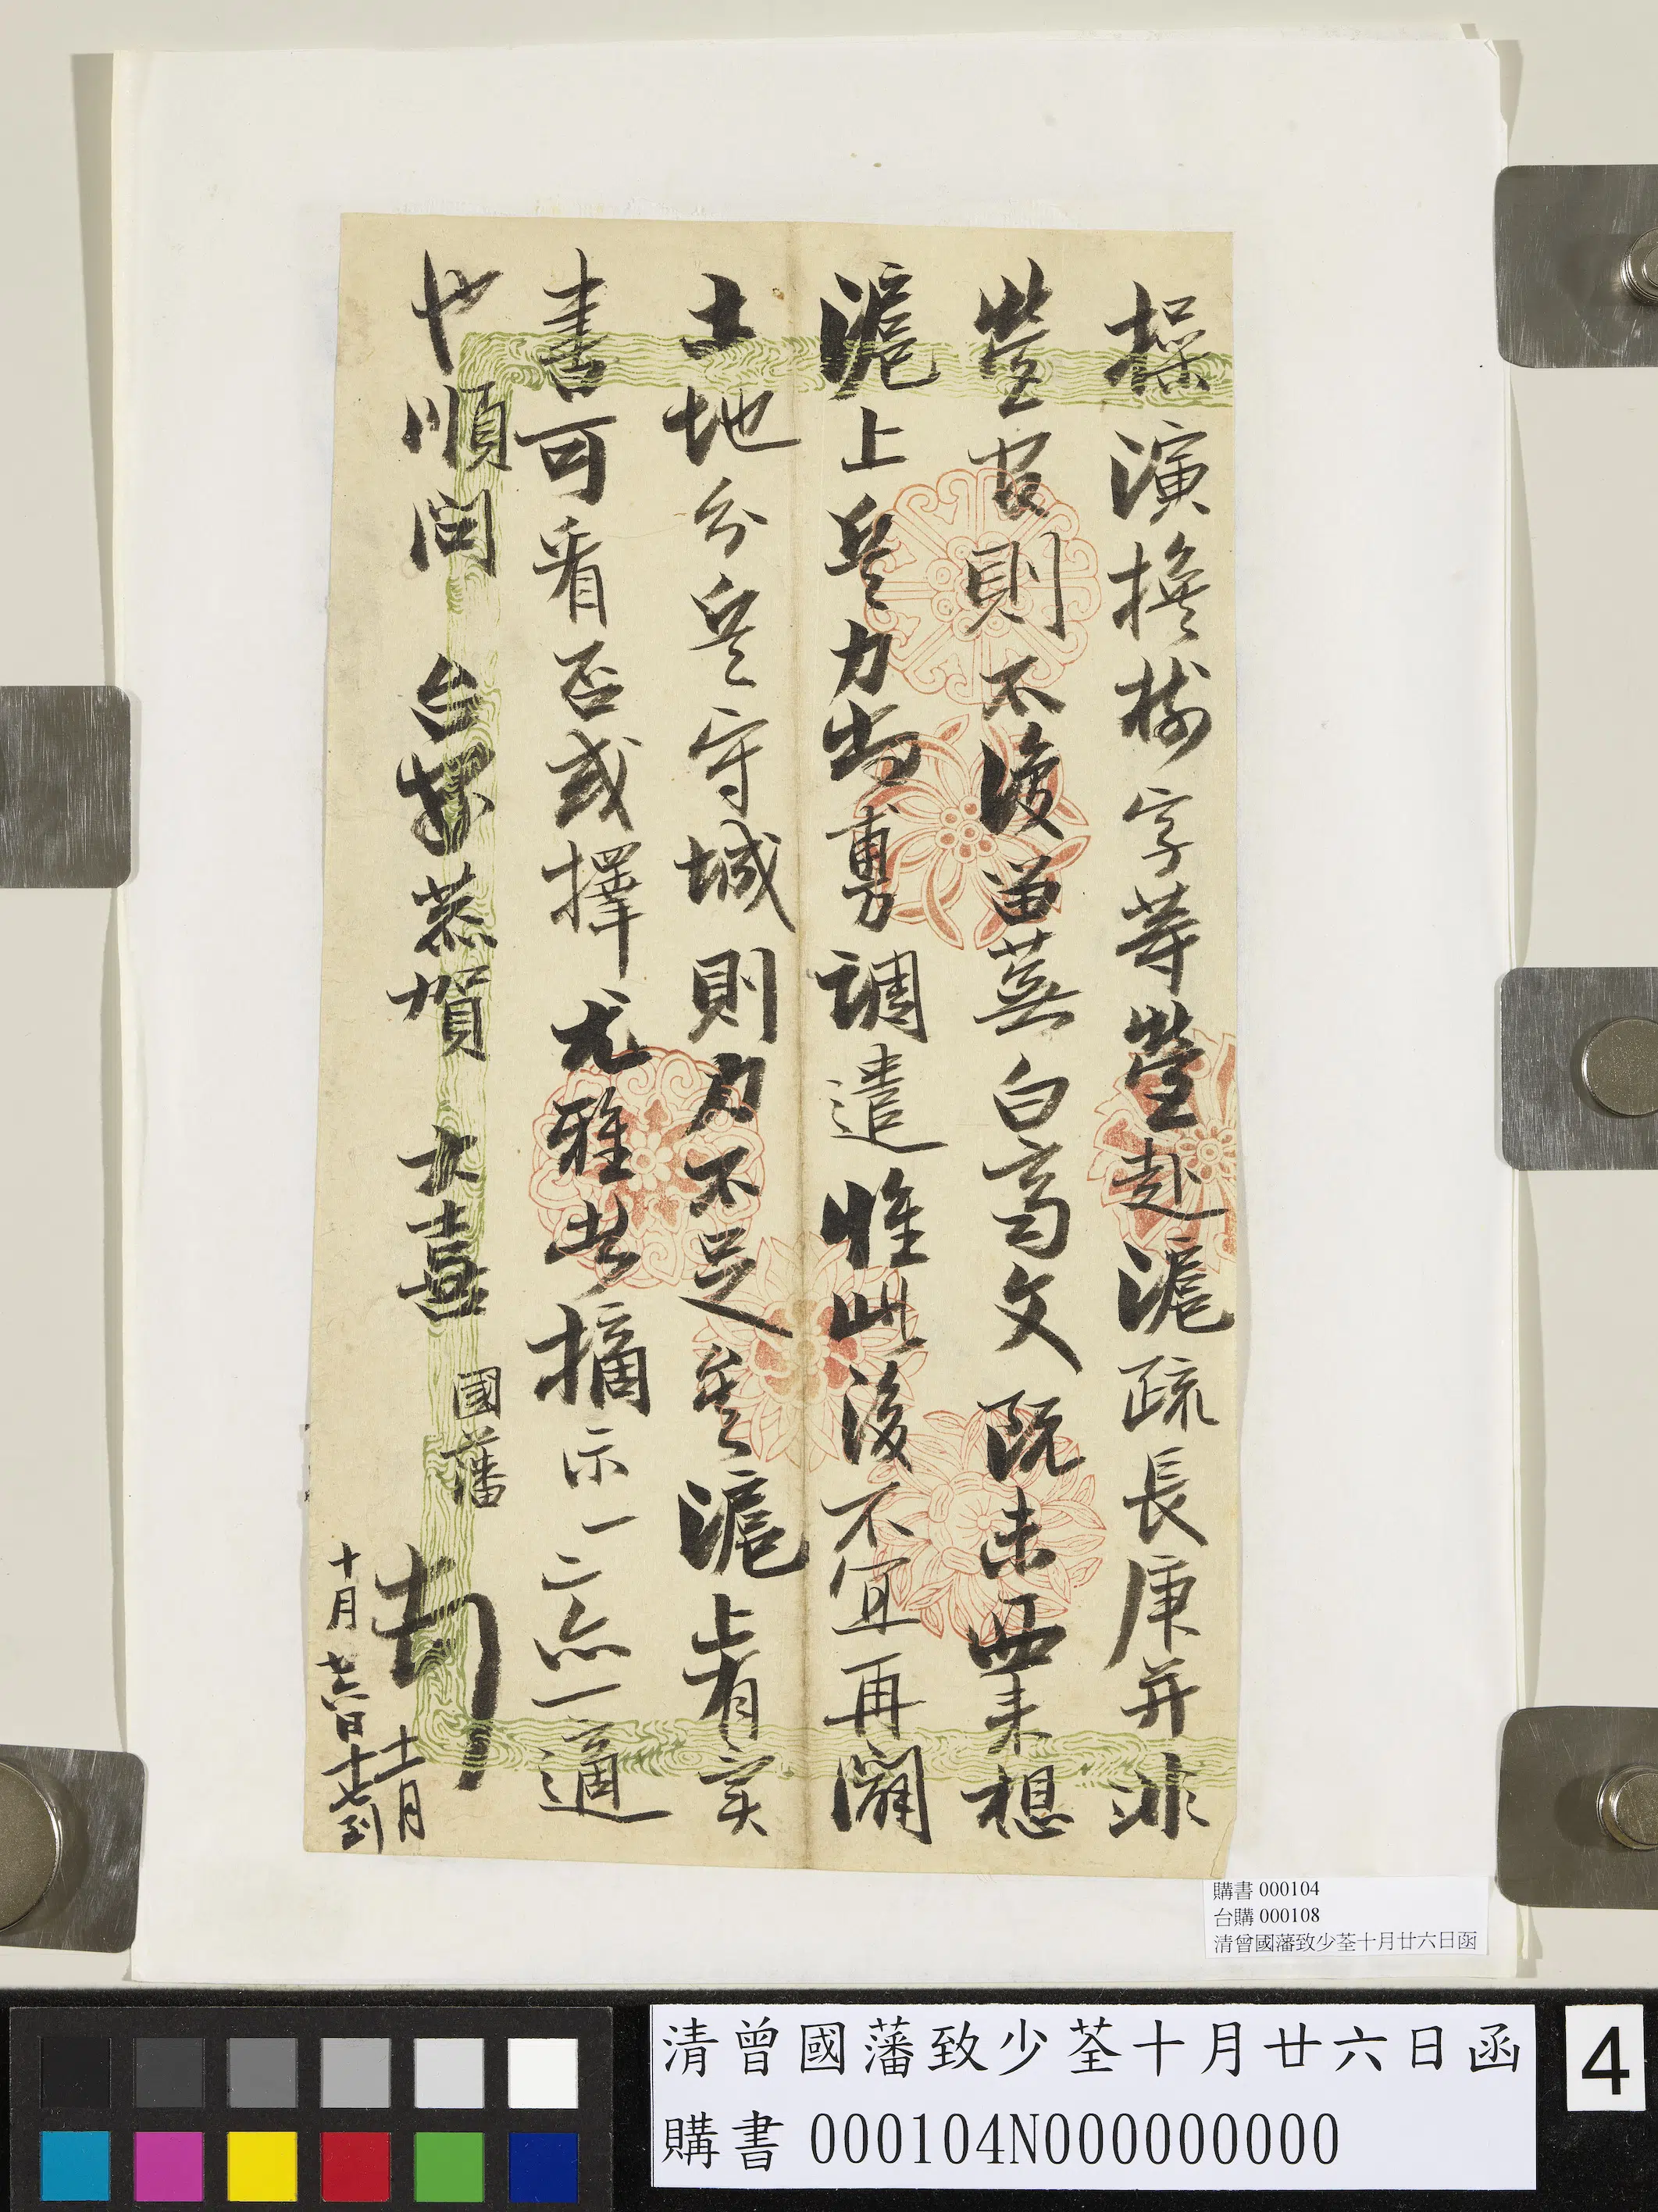 操演換樹字等營赴滬疏長庚并非
營官則不復留蕪白齊文既未西來想
滬上兵力尚調遣惟此後不宜再闢
土地分兵守城則力不足矣滬上有
書可看否或擇尤雅者摘示一二亦一適
也順問 台恭賀 大喜
國藩 頓
十月廿六日
十一月十七到
購書 000104
台購 000108
清曾國藩致少荃十月廿六日函
清曾國藩致少荃十月廿六日函
購書 000104N000000000
4